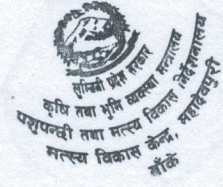 लुम्बिनी प्रदेश सरकार
कृषि तथा भूमि व्यवस्था मन्त्रालय
पशुपन्छी तथा मत्स्य विकास निर्देशनालय
मत्स्य विकास केन्द्र, महादेवपुरी
बाँके